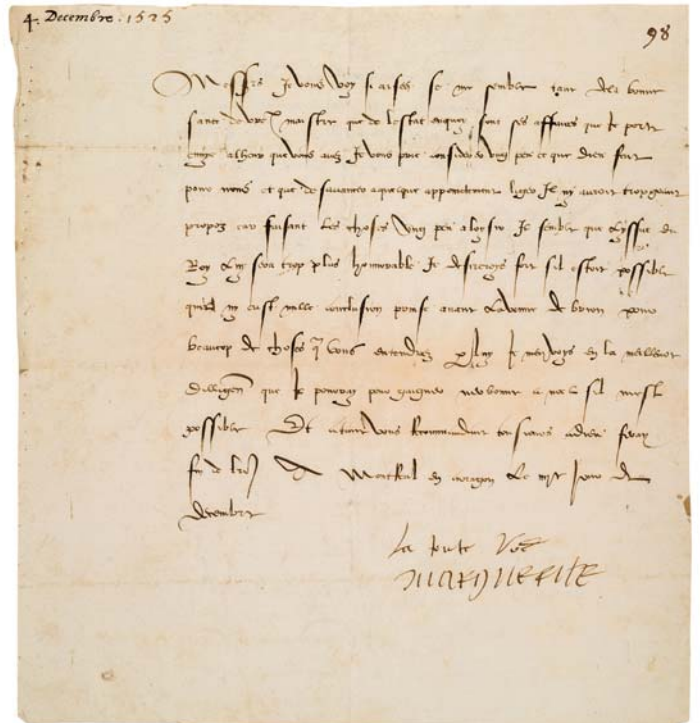 4. Decembre. 1525
98
Messrs Je vous voy si aises se me semble tant de la bonne
sante de vre maistre que de lestat en quoy sont ses affaires que Je porte
envye alheur que vous avez Je vous prie considerer ung peu ce que dieu fait
pour nous et que de savancer a quelque appoinctement legier Il ny auroit
propoz car faisant les choses ung peu a loysir Il semble que lyssue du
Roy luy sera trop plus honnorable Je desireroys fort sil estoit possible
quil ny eust nulle conclusion prinse avant la venue de brion pour
beaucop de choses q vous entendrez p luy Je men voys en la meilleur
dilligence que Je pourray pour gaigner sil mest
possible Et a tant vous Recommandant a dieu feray
fin de lre De en aragon Le jour de
decembre
La toute vre
MARGUERITE